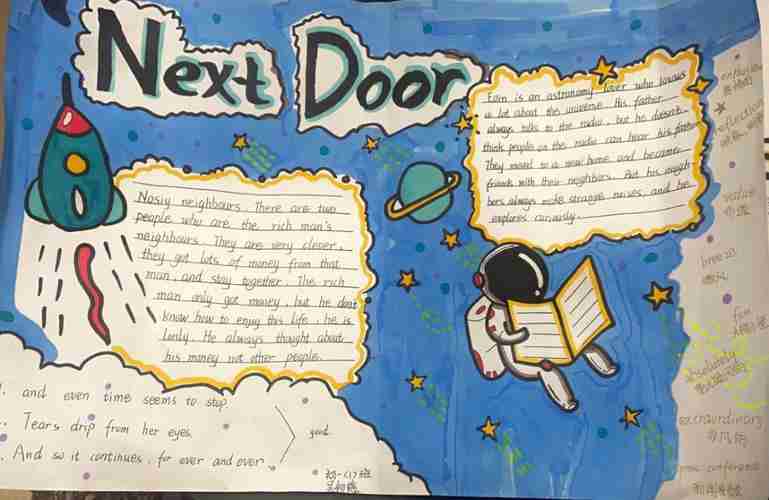 Next Door
Nosiy neighbours. There are two
people who are the rich man's
neighbours. They are very clever,
they got lots of money from that
man, and stay together. The rich
man only got money, but he dont
know how to enjoy this life, he is
lonly. He always thought about
his money not other people.
Eam is an astronomy lover who knows
a lot about the universe. His father
always talks to the radio, but he doesn't
think people on the radio can hear his father
They moved to a new home and became
friends with their neighbors. But his neigh-
bors always make strange noises, and he
explores curiously.
and even time seems to stop
Tears drip from her eyes.
And so it continues, for ever and ever.
good.
初一(1)班
reflection
value
extraordinary
press conference